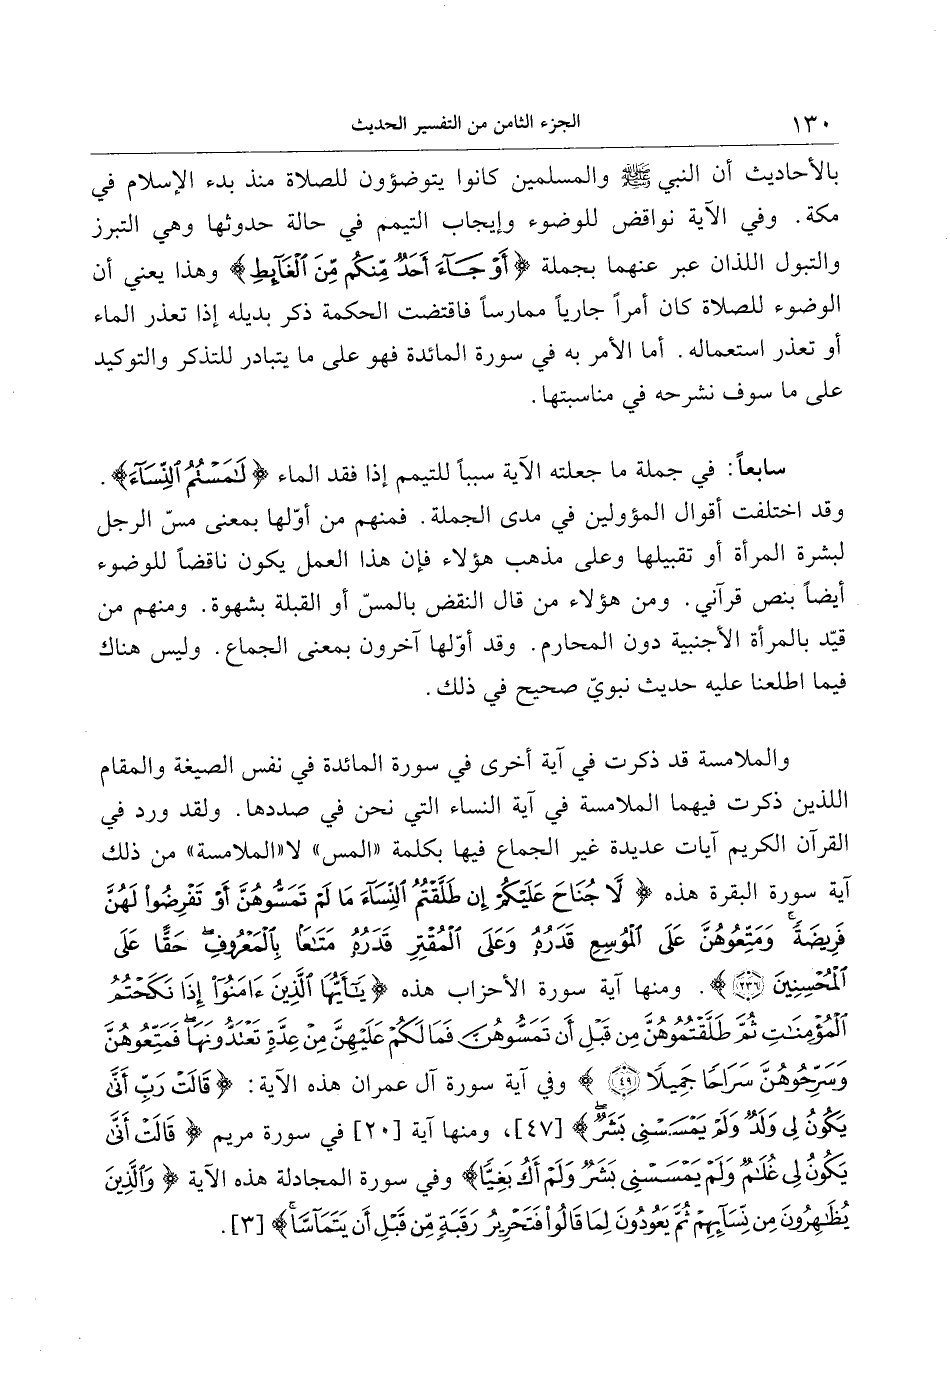 ١٣٠ الجزء الثامن من التفسير الحديث
بالأحاديث أن النبي ﷺ والمسلمين كانوا يتوضؤون للصلاة منذ بدء الإسلام في
مكة. وفي الآية نواقض للوضوء وإيجاب التيمم في حالة حدوثها وهي التبرز
والتبول اللذان عبر عنهما بجملة ﴿أَوْ جَآءَ أَحَدٌ مِّنكُم مِّنَ ٱلْغَآئِطِ﴾ وهذا يعني أن
الوضوء للصلاة كان أمراً جارياً ممارساً فاقتضت الحكمة ذكر بديله إذا تعذر الماء
أو تعذر استعماله. أما الأمر به في سورة المائدة فهو على ما يتبادر للتذكر والتوكيد
على ما سوف نشرحه في مناسبتها.
سابعاً: في جملة ما جعلته الآية سبباً للتيمم إذا فقد الماء ﴿لَٰمَسْتُمُ ٱلنِّسَآءَ﴾.
وقد اختلفت أقوال المؤولين في مدى الجملة. فمنهم من أوّلها بمعنى مسّ الرجل
لبشرة المرأة أو تقبيلها وعلى مذهب هؤلاء فإن هذا العمل يكون ناقضاً للوضوء
أيضاً بنص قرآني. ومن هؤلاء من قال النقض بالمسّ أو القبلة بشهوة. ومنهم من
قيّد بالمرأة الأجنبية دون المحارم. وقد أوّلها آخرون بمعنى الجماع. وليس هناك
فيما اطلعنا عليه حديث نبويّ صحيح في ذلك.
والملامسة قد ذكرت في آية أخرى في سورة المائدة في نفس الصيغة والمقام
اللذين ذكرت فيهما الملامسة في آية النساء التي نحن في صددها. ولقد ورد في
القرآن الكريم آيات عديدة غير الجماع فيها بكلمة «المس» لا«الملامسة» من ذلك
آية سورة البقرة هذه ﴿لَّا جُنَاحَ عَلَيْكُمْ إِن طَلَّقْتُمُ ٱلنِّسَآءَ مَا لَمْ تَمَسُّوهُنَّ أَوْ تَفْرِضُوا۟ لَهُنَّ
فَرِيضَةً ۚ وَمَتِّعُوهُنَّ عَلَى ٱلْمُوسِعِ قَدَرُهُۥ وَعَلَى ٱلْمُقْتِرِ قَدَرُهُۥ مَتَٰعًۢا بِٱلْمَعْرُوفِ ۖ حَقًّا عَلَى
ٱلْمُحْسِنِينَ ٢٣٦﴾. ومنها آية سورة الأحزاب هذه ﴿يَٰٓأَيُّهَا ٱلَّذِينَ ءَامَنُوٓا۟ إِذَا نَكَحْتُمُ
ٱلْمُؤْمِنَٰتِ ثُمَّ طَلَّقْتُمُوهُنَّ مِن قَبْلِ أَن تَمَسُّوهُنَّ فَمَا لَكُمْ عَلَيْهِنَّ مِنْ عِدَّةٍ تَعْتَدُّونَهَا ۖ فَمَتِّعُوهُنَّ
وَسَرِّحُوهُنَّ سَرَاحًا جَمِيلًا ٤٩﴾ وفي آية سورة آل عمران هذه الآية: ﴿قَالَتْ رَبِّ أَنَّىٰ
يَكُونُ لِى وَلَدٌ وَلَمْ يَمْسَسْنِى بَشَرٌ ۖ﴾ [٤٧]، ومنها آية [٢٠] في سورة مريم ﴿قَالَتْ أَنَّىٰ
يَكُونُ لِى غُلَٰمٌ وَلَمْ يَمْسَسْنِى بَشَرٌ وَلَمْ أَكُ بَغِيًّا﴾ وفي سورة المجادلة هذه الآية ﴿وَٱلَّذِينَ
يُظَٰهِرُونَ مِن نِّسَآئِهِمْ ثُمَّ يَعُودُونَ لِمَا قَالُوا۟ فَتَحْرِيرُ رَقَبَةٍ مِّن قَبْلِ أَن يَتَمَآسَّا ۚ﴾ [٣].